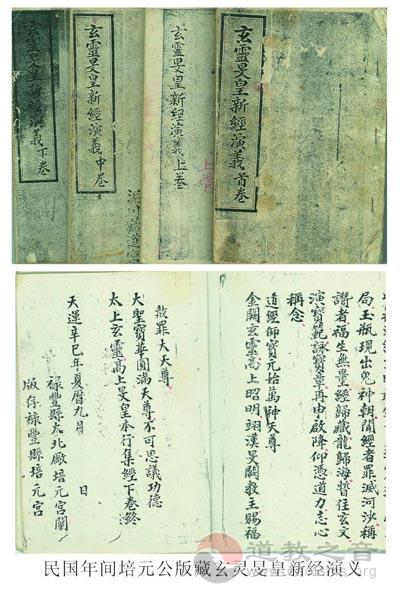 玄靈旻皇新經演義首卷
玄靈旻皇新經演義上卷
玄靈旻皇新經演義中卷
玄靈旻皇新經演義下卷
局玉瓶現出鬼神朝聞經者罪滅河沙稱
讚者福生無量經歸藏龍歸海督往玄文
演寶範詠寶章再由啟降仰憑道力志心
稱念
道經師寶元始萬神天尊
金闕玄靈高上昭明翊漢旻闕教主賜福
赦罪大天尊
大聖寶華圓滿天尊不可思議功德
太上玄靈高上旻皇本行集經下卷終
天運辛巳年夏曆九月 日
祿豐縣大北廠培元宮闡
版存祿豐縣培元宮
道教之音
民国年间培元公版藏玄灵旻皇新经演义